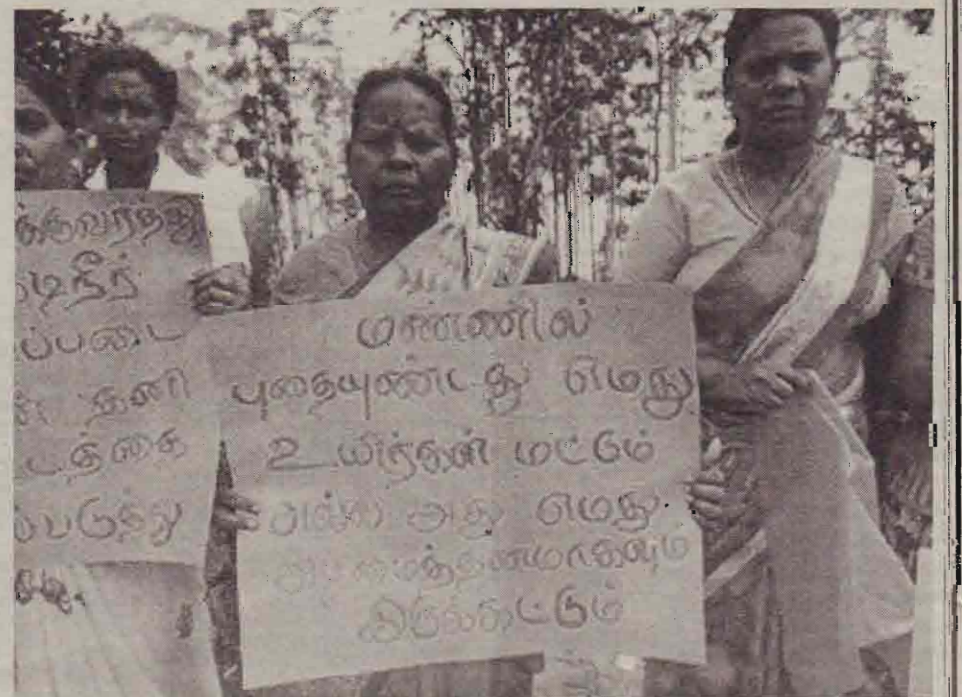 க்குவரத்து
குடிநீர்
ப்படை
தனி
டத்தை
படுத்து
மண்ணில்
புதையுண்டது எமது
உயிர்கள் மட்டும்
அல்ல அது எமது
அடிமைத்தனமாகவும்
இருக்கட்டும்